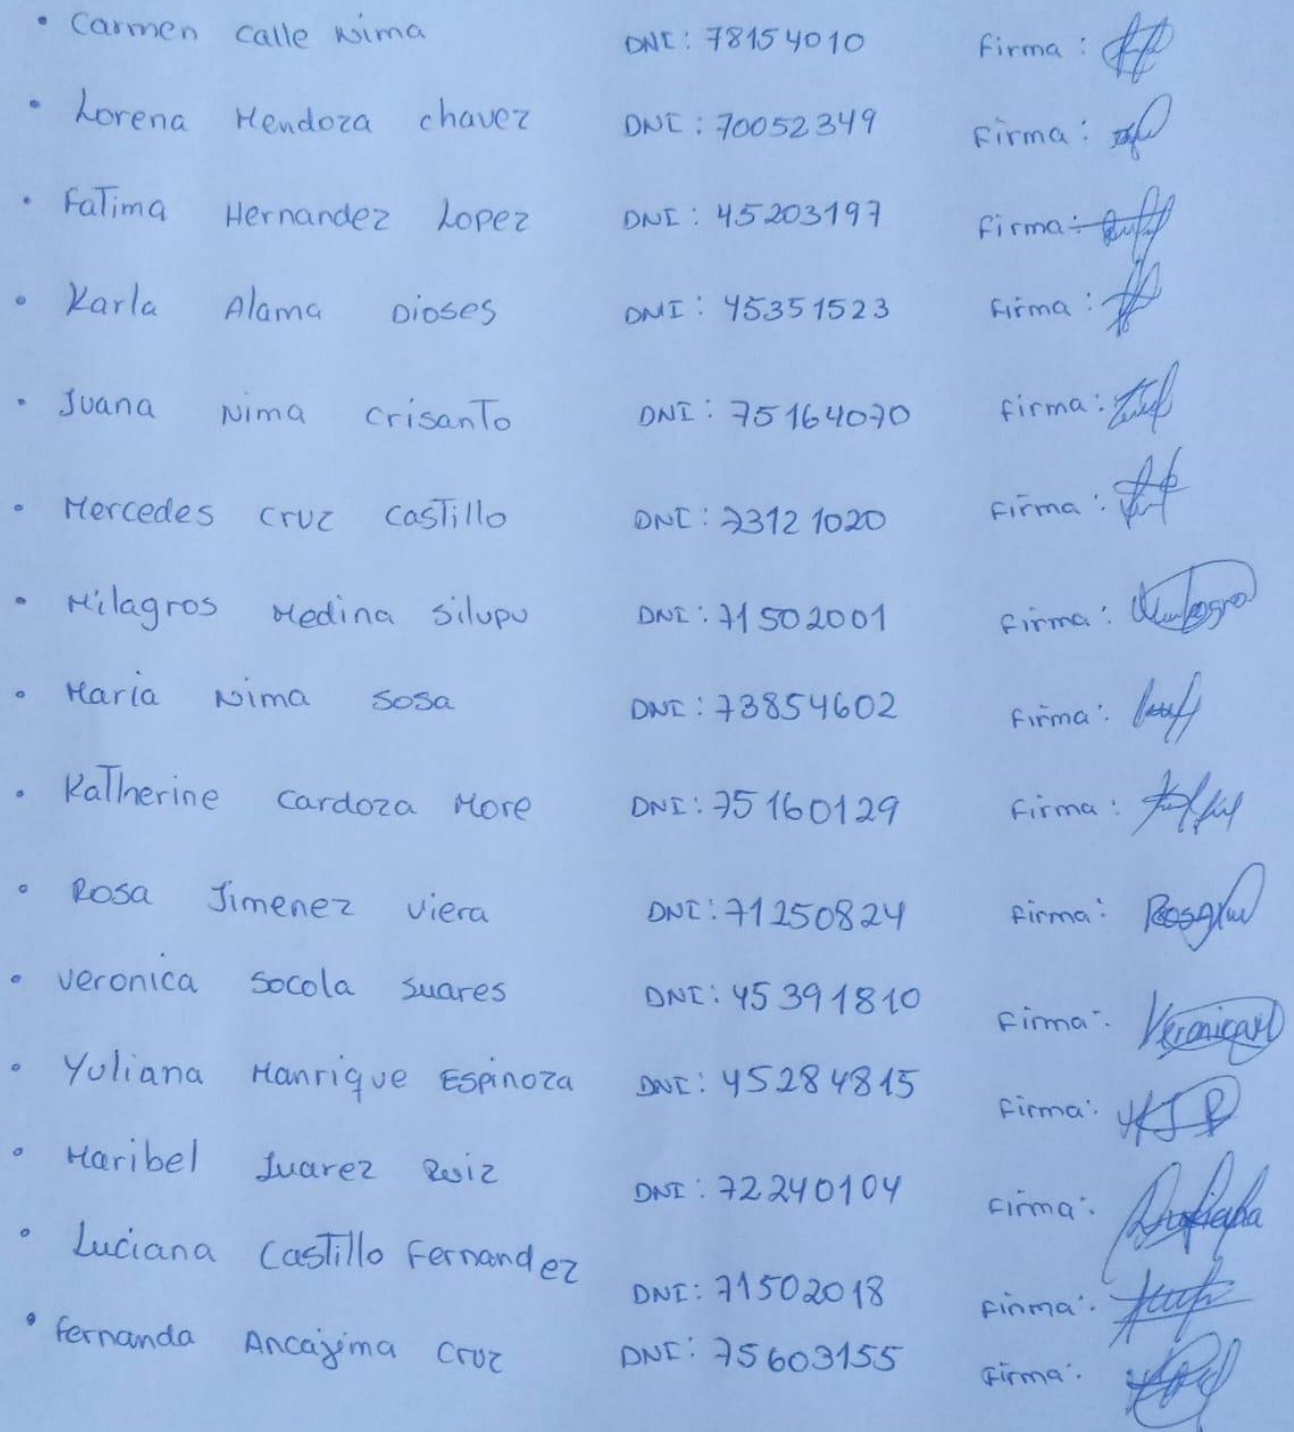 • Carmen Calle Nima DNI: 78154010 Firma:
• Lorena Mendoza chavez DNI: 70052349 Firma:
• Fatima Hernandez Lopez DNI: 45203197 Firma:
• Karla Alama Dioses DNI: 45351523 Firma:
• Juana Nima Crisanto DNI: 75164070 Firma:
• Mercedes Cruz Castillo DNI: 73121020 Firma:
• Milagros Medina Silupu DNI: 71502001 Firma:
• Maria Nima Sosa DNI: 73854602 Firma:
• Katherine Cardoza More DNI: 75160129 Firma:
• Rosa Jimenez Viera DNI: 71250824 Firma:
• Veronica Socola Suares DNI: 45391810 Firma:
• Yuliana Manrique Espinoza DNI: 45284815 Firma:
• Maribel Juarez Ruiz DNI: 72240104 Firma:
• Luciana Castillo Fernandez DNI: 71502018 Firma:
• Fernanda Ancajima Cruz DNI: 75603155 Firma: